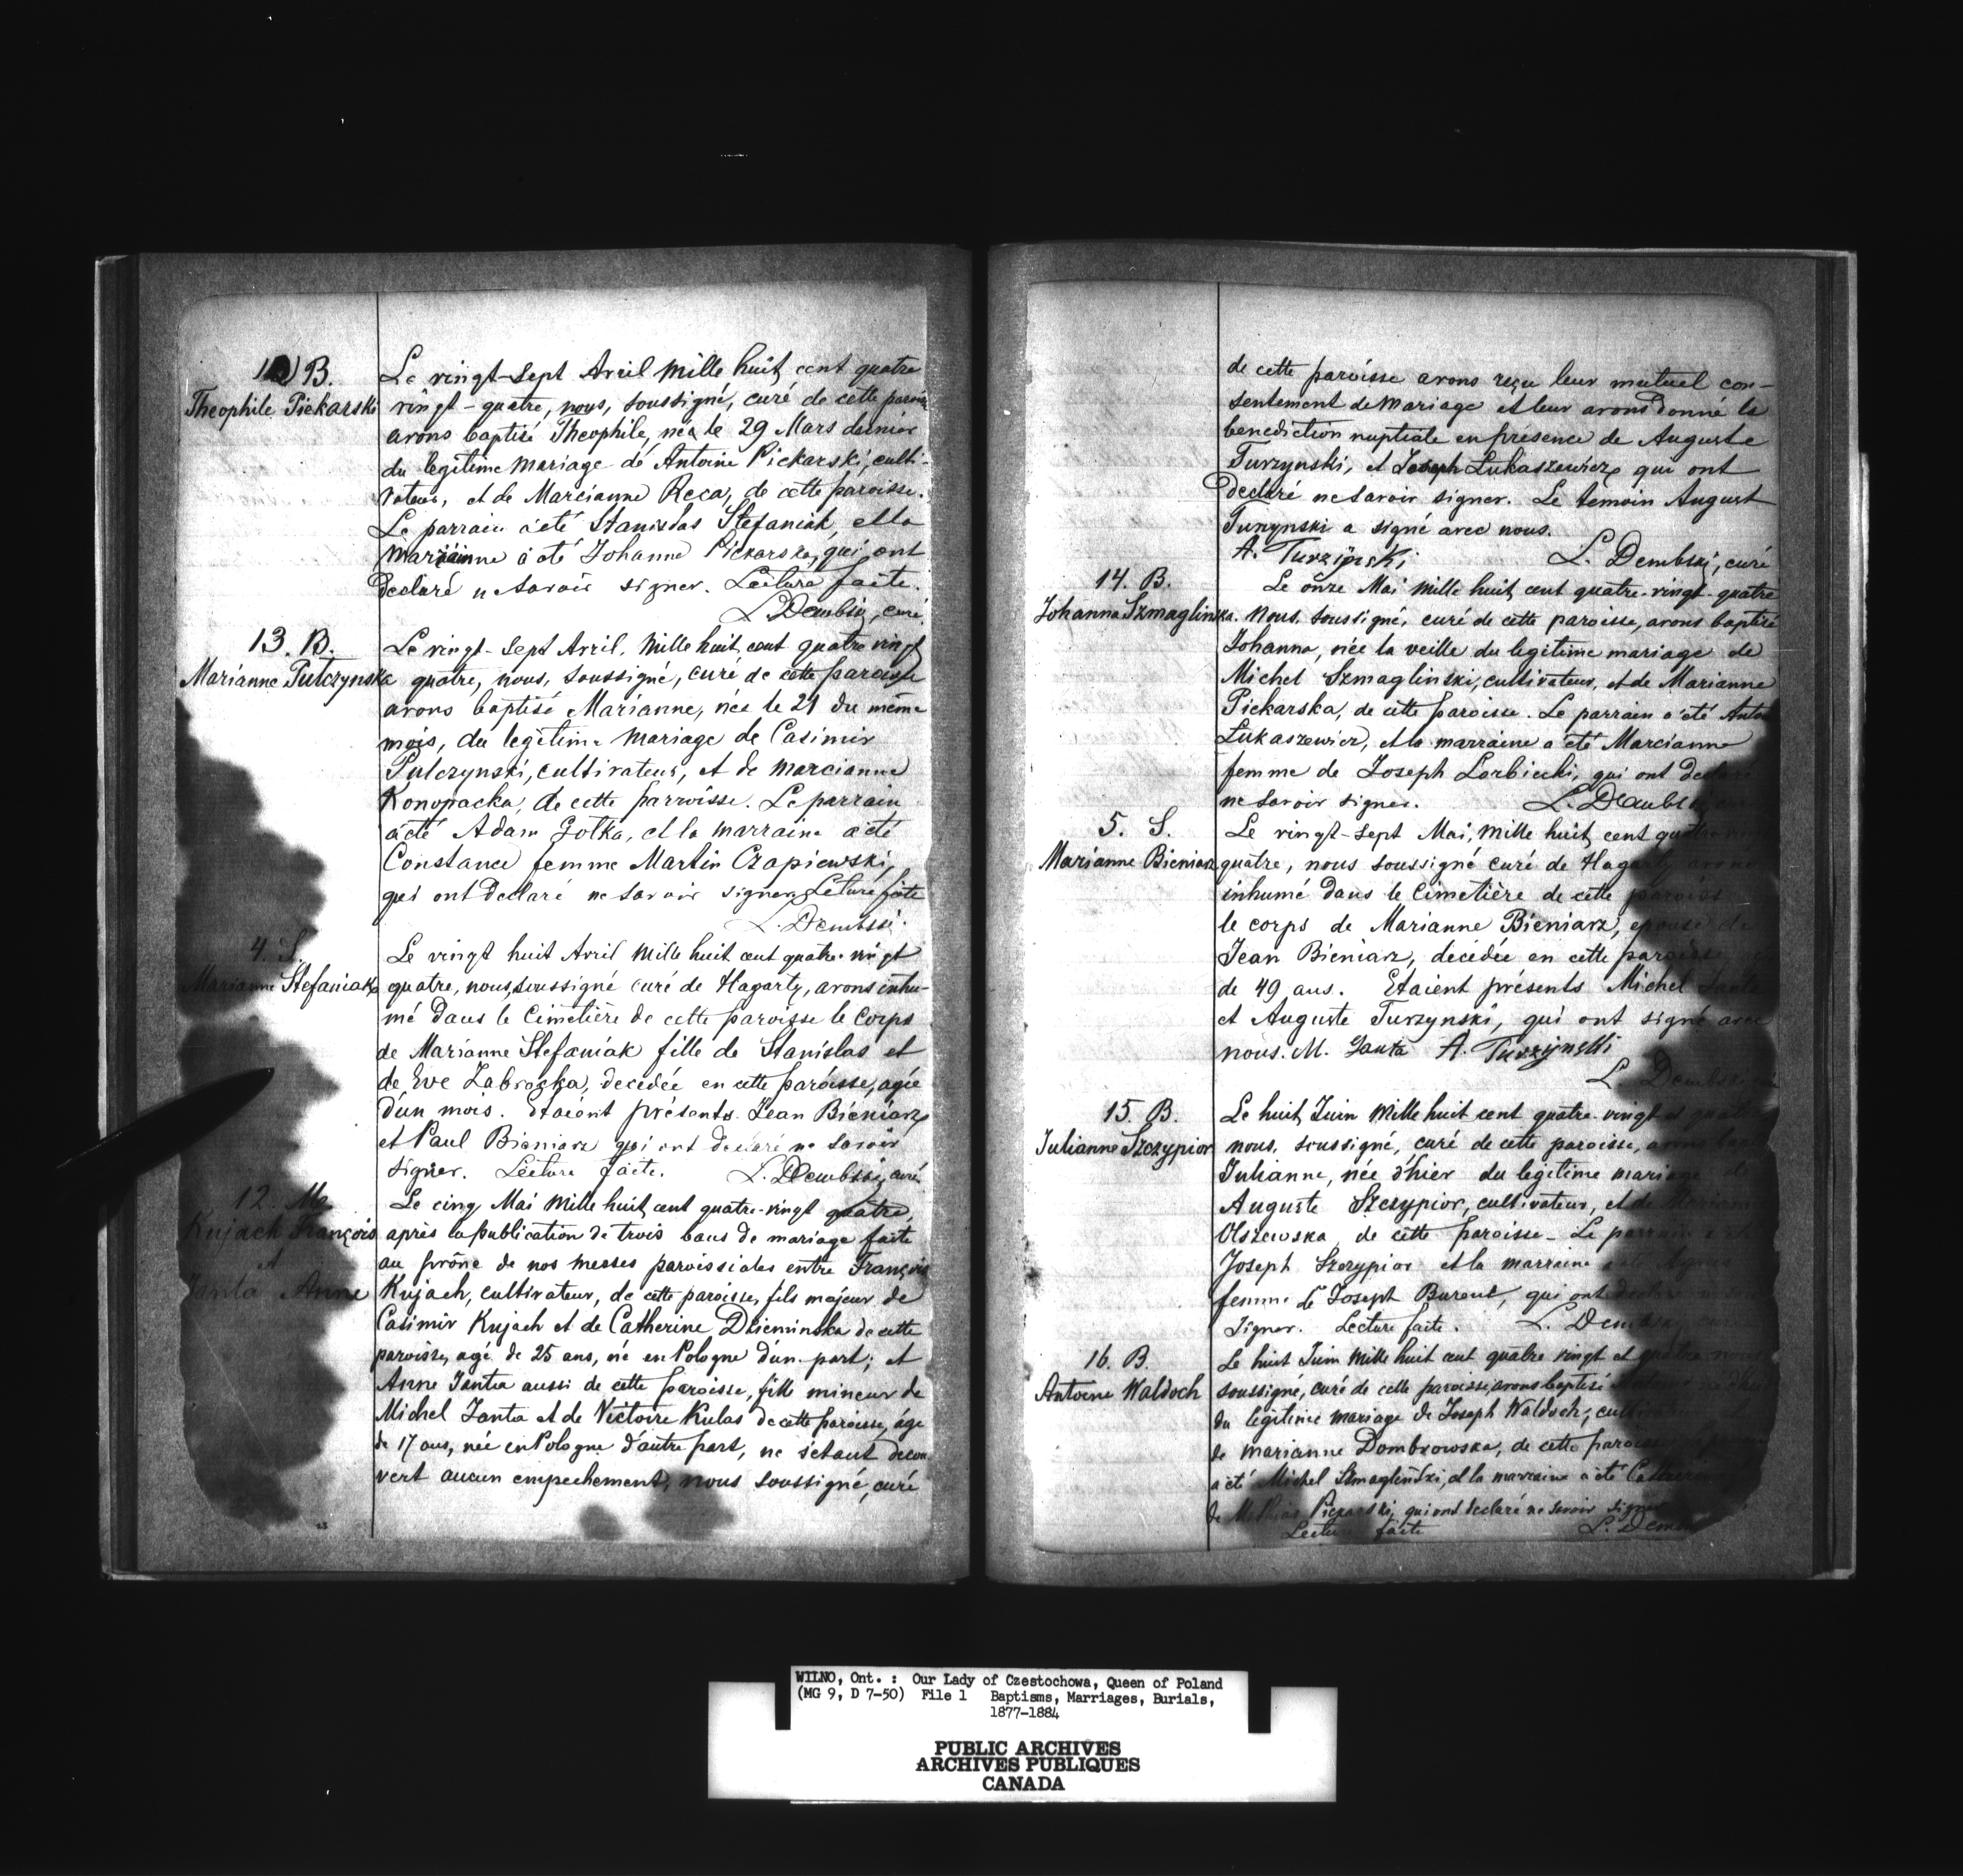 12 B.
Theophile Piekarski
Le vingt-Sept Avril Mille huit cent quatre
vingt-quatre, nous, soussigné, curé de cette paroisse
avons baptisé Theophile, née le 29 Mars dernier
du legitime Mariage de Antoine Piekarski, culti-
vateur, et de Marcianne Reca, de cette paroisse.
Le parrain a été Stanislas Stefaniak et la
marrainne a été Johanna Piekarska, qui ont
declaré ne Savoir signer. Lecture faite.
L. Dembski, curé.
13. B.
Marianne Pulczynska
Le vingt-Sept Avril, Mille huit cent quatre vingt
quatre, nous, soussigné, curé de cette paroisse
avons baptisé Marianne, née le 21 du même
mois, du legitime Mariage de Casimir
Pulczynski, cultivateur, et de marcianne
Konopacka, de cette parroisse. Le parrain
a été Adam Zolka, et la marraine a été
Constance femme Martin Czapiewski,
qui ont declaré ne Savoir signer. Leture faite
L. Dembski.
4. S.
Marianne Stefaniak
Le vingt huit Avril Mille huit cent quatre-vingt
quatre, nous, soussigné curé de Hagarty, avons inhu-
mé dans le Cimetière de cette paroisse le Corps
de Marianne Stefaniak fille de Stanislas et
de Eve Zabrocka, decedée en cette paroisse, agée
d'un mois. Etaient présents Jean Bieniarz
et Paul Bieniarz qui ont declaré ne Savoir
signer. Lecture faite. L. Dembski, curé
12. M.
Kujach François
A
Janta Anne
Le cinq Mai Mille huit cent quatre-vingt quatre,
après la publication de trois bans de mariage faite
au prône de nos messes paroissiales entre François
Kujach, cultivateur, de cette paroisse, fils majeur de
Casimir Kujach et de Catherine Dzieminska de cette
paroisse, agé de 25 ans, né en Pologne d'un part; et
Anne Janta aussi de cette paroisse, fille mineur de
Michel Janta et de Victoire Kulas de cette paroisse, âge
de 17 ans, née en Pologne d'autre part, ne s'etant decou
vert aucun empechement, nous soussigné, curé
de cette paroisse avons reçu leur mutuel con-
sentement de Mariage et leur avons donné la
benediction nuptiale en présence de Auguste
Turzynski, et Joseph Lukaszewicz qui ont
declaré ne Savoir signer. Le temoin August
Turzynski a signé avec nous.
A. Turzynski L. Dembski, curé
14. B.
Johanna Szmaglinska.
Le onze Mai Mille huit cent quatre-vingt-quatre
Nous, soussigné, curé de cette paroisse, avons baptisé
Johanna, née la veille du legitime mariage de
Michel Szmaglinski, cultivateur, et de Marianne
Piekarska, de cette paroisse. Le parrain a été
Lukaszewicz, et la marraine a été Marcianne
femme de Joseph Lorbiecki, qui ont declaré
ne Savoir signer. L. Dembski
5. S.
Marianne Bieniarz
Le vingt-Sept Mai, Mille huit cent quatre
quatre, nous soussigné curé de Hagarty avons
inhumé dans le Cimetière de cette paroisse
le corps de Marianne Bieniarz, epouse de
Jean Bieniarz, décédée en cette paroisse
de 49 ans. Etaient présents Michel Janta
et Auguste Turzynski, qui ont signé avec
nous. M. Janta A. Turzynski
L. Dembski
15. B.
Julianne Szczypior
Le huit Juin Mille huit cent quatre-vingt et quatre
nous, soussigné, curé de cette paroisse, avons
Julianne, née d'hier du legitime mariage de
Auguste Szczypior, cultivateur, et de
Olszewska de cette paroisse - Le parrain a été
Joseph Szczypior et la marraine a été
femme de Joseph Burent, qui ont declaré
signer. Lecture faite. L. Dembski
16. B.
Antoine Waldoch
Le huit Juin Mille huit cent quatre vingt et quatre nous
soussigné, curé de cette paroisse, avons baptisé
du legitime mariage de Joseph Waldoch,
de marianne Dombrowska, de cette paroisse
a été Michel Szmaglinski, et la marraine a été
de Mathias Piekarski, qui ont declaré ne savoir signer
Lecture faite L. Dem
WILNO, Ont. : Our Lady of Czestochowa, Queen of Poland
(MG 9, D 7-50) File 1 Baptisms, Marriages, Burials,
1877-1884
PUBLIC ARCHIVES
ARCHIVES PUBLIQUES
CANADA